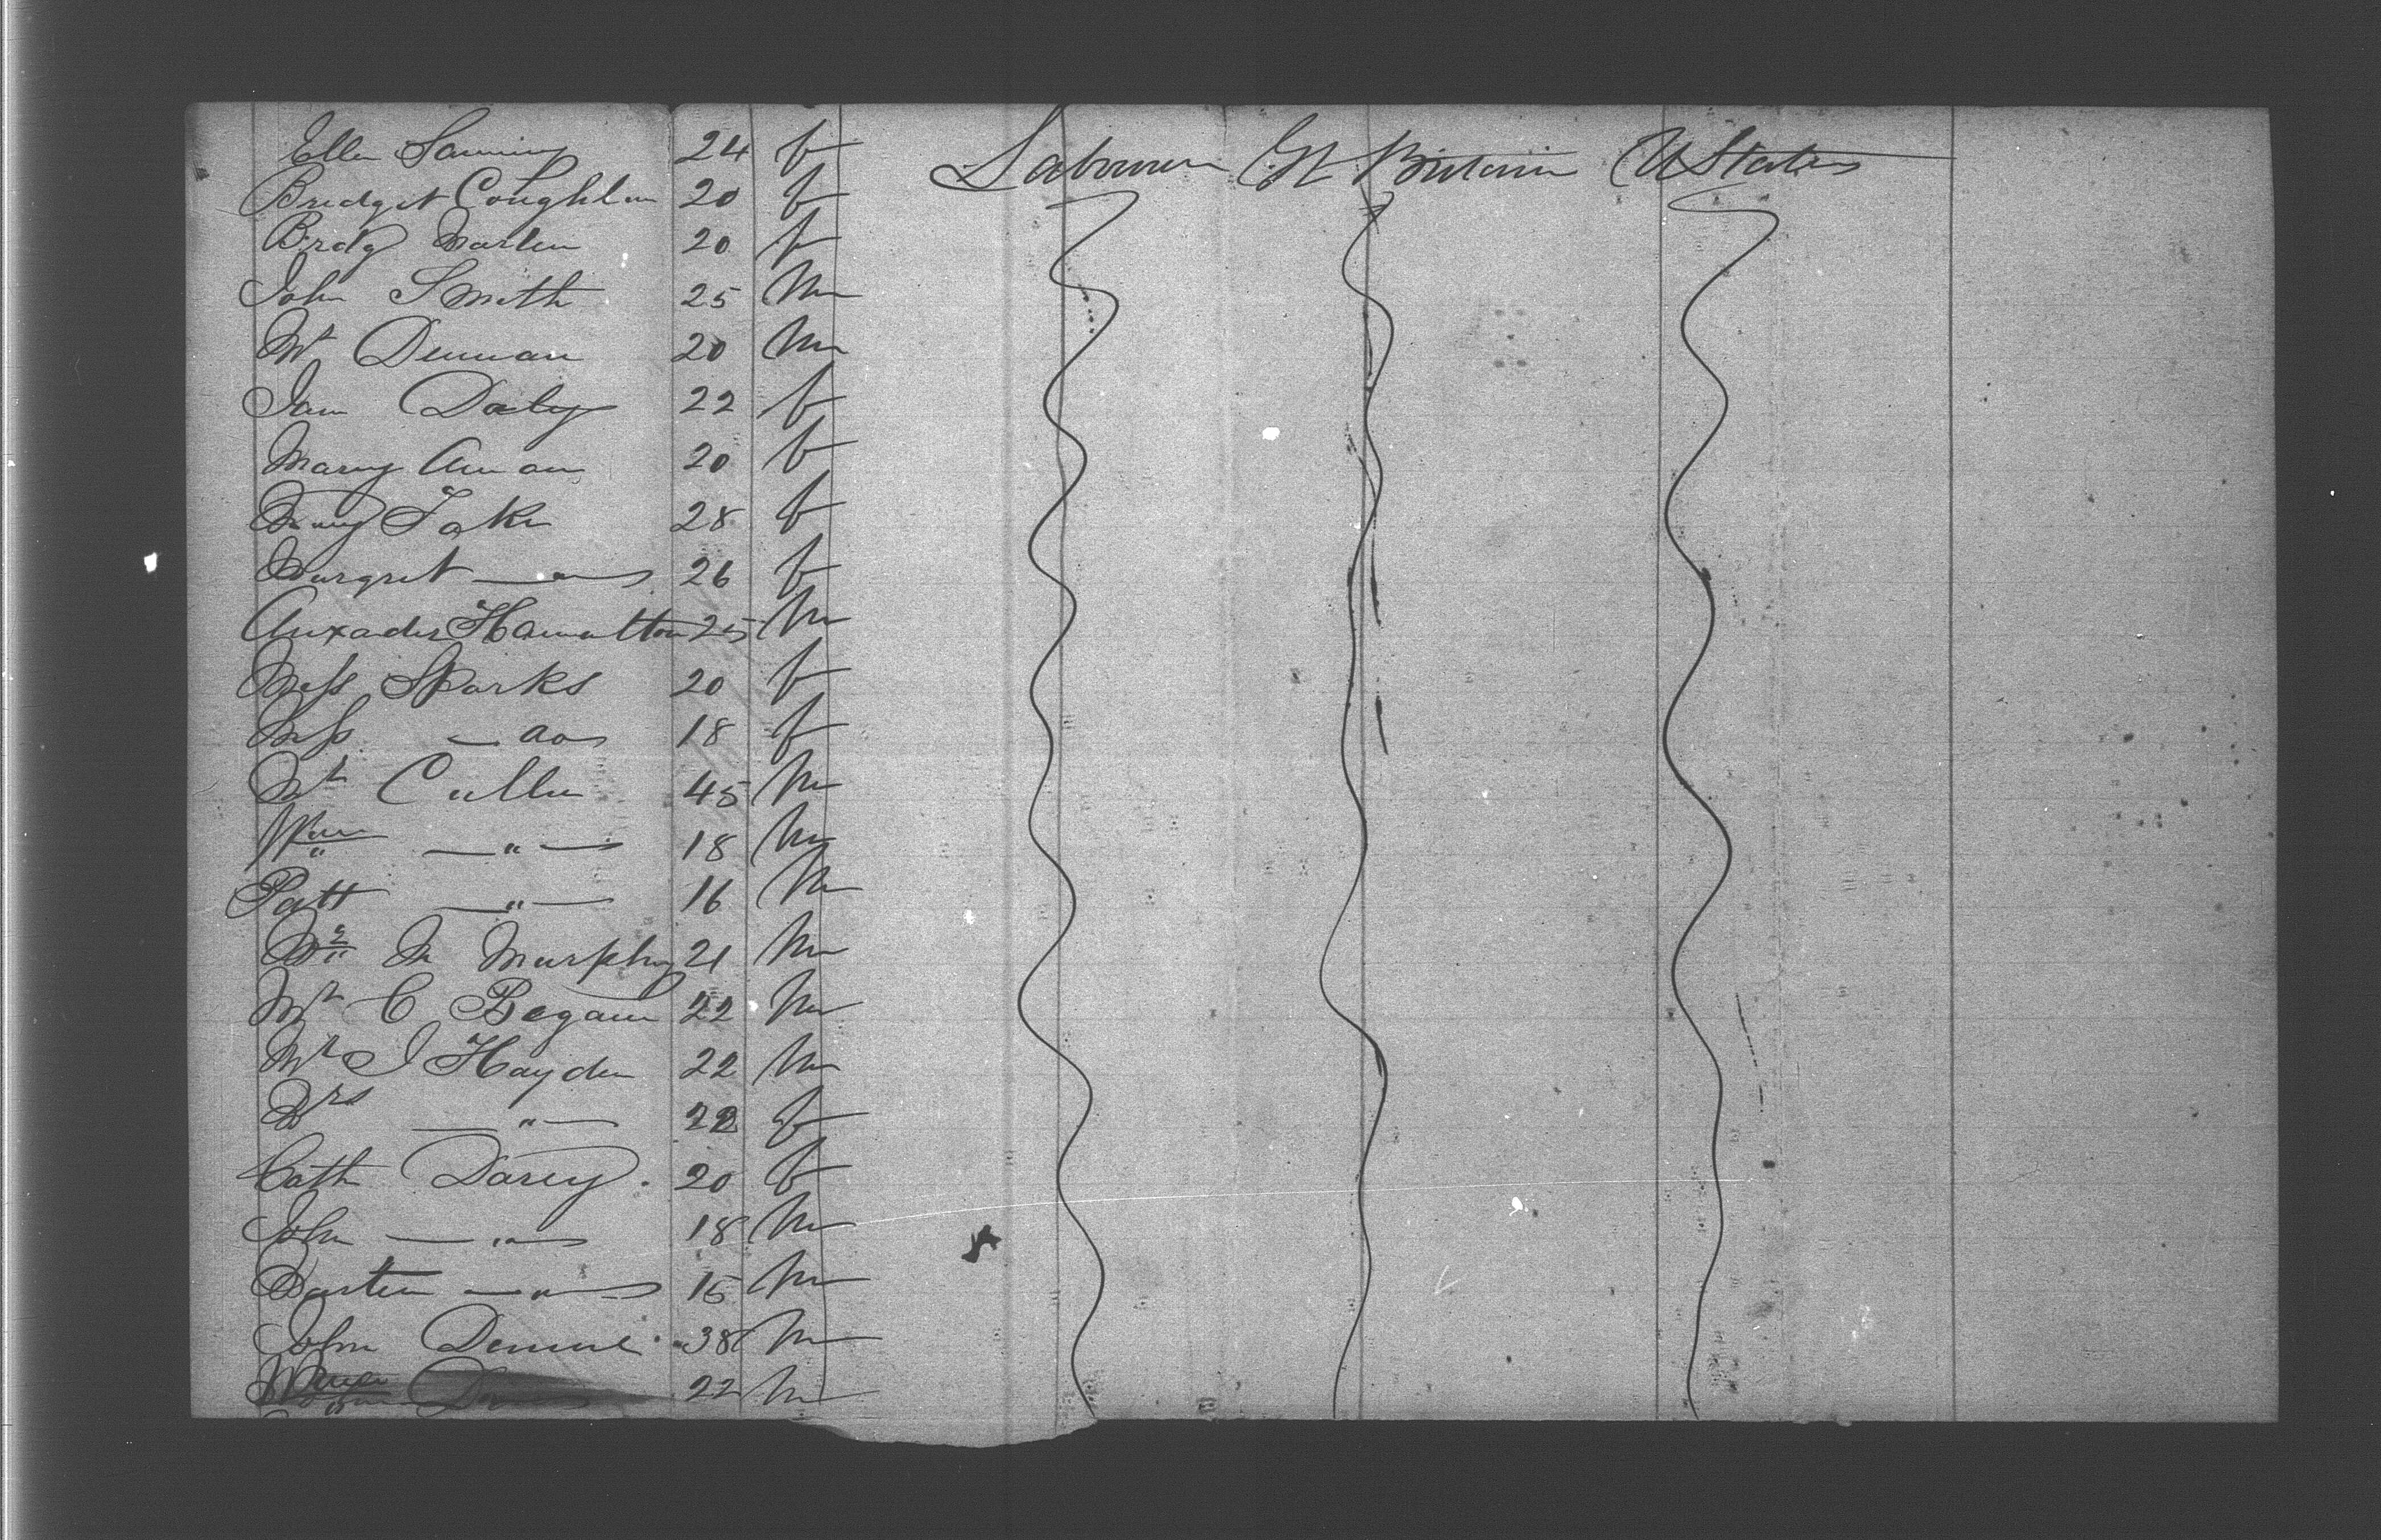 Ellen Lanning 24 f Labourer Gt Britain U States
Bridget Coughlan 20 f
Bridg Marten 20 f
John Smith 25 M
Mr Dennan 20 M
Jane Daly 22 f
Mary 20 f
Mary Jake 28 f
Margret — " — 26 f
Auxader Hamaltton 25 M
Miss Sparks 20 f
Miss — do 18 f
Mr Cullen 45 M
Wm — " — 18 M
Patt — " — 16 M
Mr M Murphy 21 M
Mr C Begann 22 M
Mr J Hayden 22 M
Mrs — " — 22 f
Cath Darcy 20 f
John — " — 18 M
Marten — " — 15 M
John 38 M
22 M